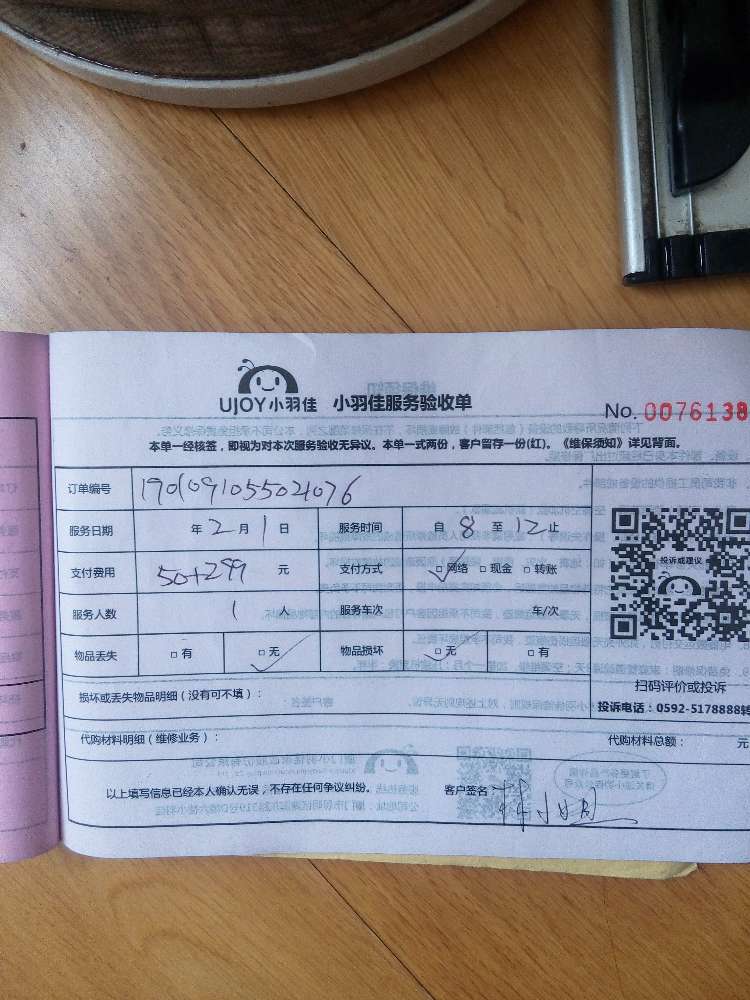 UJOY小羽佳 小羽佳服务验收单
No. 0076138
本单一经核签，即视为对本次服务验收无异议。本单一式两份，客户留存一份(红)。《维保须知》详见背面。
订单编号 1901091055021076
服务日期 年 2 月 1 日 服务时间 自 8 至 12 止
支付费用 50+299 元 支付方式 □网络 □现金 □转账
服务人数 1 人 服务车次 车/次
物品丢失 □有 □无 物品损坏 □无 □有
投诉或建议
扫码评价或投诉
投诉电话：0592-5178888转
损坏或丢失物品明细（没有可不填）：
代购材料明细（维修业务）： 代购材料总额： 元
以上填写信息已经本人确认无误，不存在任何争议纠纷。 客户签名：